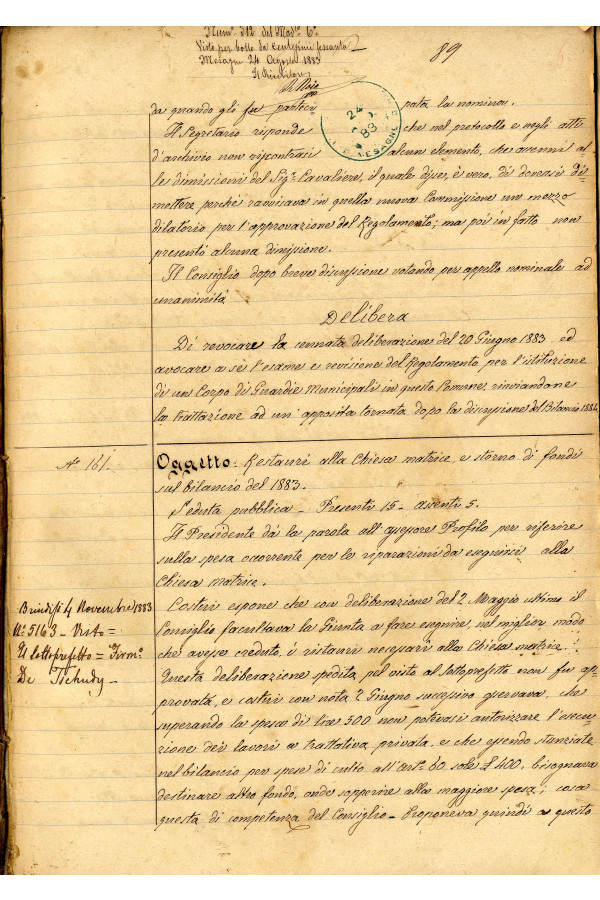 Num° 312 del Mod° 6°
Visto per bollo da Centesimi sessanta
Mesagne 24 Agosto 1883
Il Ricevitore
89
da quando gli fu parteci pata la nomina.
Il Segretario risponde che nel protocollo e negli atti
d'archivio non riscontrasi alcun elemento, che accenni al-
le dimissioni del Sig.r Cavaliere, il quale disse, è vero, di doversi di-
mettere perchè ravvisava in quella nuova Commissione un mezzo
dilatorio per l'approvazione del Regolamento; ma poi in fatto non
presentò alcuna dimissione.
Il Consiglio dopo breve discussione votando per appello nominale ad
unanimità
Delibera
Di revocare la cennata deliberazione del 20 Giugno 1883 ed
avocare a sè l'esame e revisione del Regolamento per l'istituzione
di un Corpo di Guardie Municipali in questo Comune, rinviandone
la trattazione ad un'apposita tornata dopo la discussione del Bilancio 1884.
N° 161.
Oggetto: Restauri alla Chiesa matrice, e storno di fondi
sul bilancio del 1883.
Seduta pubblica - Presenti 15 - assenti 5.
Il Presidente dà la parola all'assessore Profilo per riferire
sulla spesa occorrente per le riparazioni da eseguirsi alla
Chiesa matrice.
Costui espone che con deliberazione del 2 Maggio ultimo il
Consiglio facultava la Giunta a fare eseguire, nel miglior modo
che avesse creduto, i ristauri necessari alla Chiesa matrice.
Questa deliberazione spedita pel visto al Sottoprefetto non fu ap-
provata, e costui con nota 2 Giugno successivo osservava, che
superando la spesa di lire 500 non potevasi autorizzare l'esecu-
zione dei lavori a trattativa privata, e che essendo stanziate
nel bilancio per spese di culto all'Art° 60 sole £ 400, bisognava
destinare altro fondo, onde sopperire alla maggiore spesa; cosa
questa di competenza del Consiglio - Proponeva quindi a questo
Brindisi 4 Novembre 1883
N° 5163 - Visto =
Il Sottoprefetto = Firm°
De Tschudy -